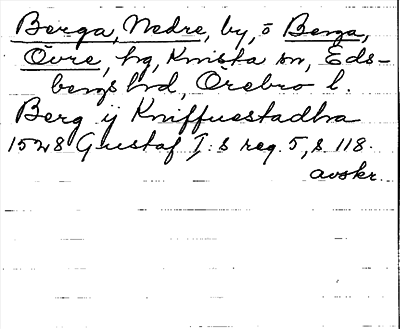 Berga, Nedre, by, o Berga,
Övre, hg, Knista sn, Eds-
bergs hrd, Örebro l.
Berg ij Kniffuestadha
1528 Gustaf I:s reg. 5, s 118.
avskr.